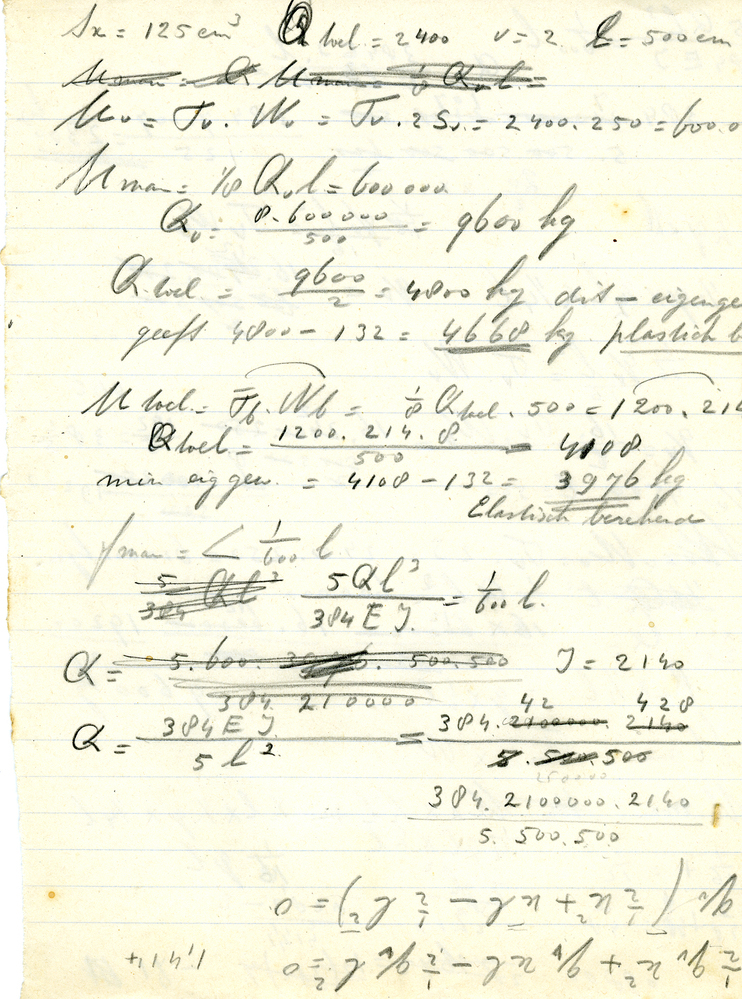 Sx = 125 cm³ Q toel. = 2400 v = 2 l = 500 cm
Mv = σv . Wv = σv . 2 Sx = 2400 . 250 = 600.0
M max = 1/8 Qv l = 600 000
Qv = 8 . 600 000 / 500 = 9600 kg
Q toel = 9600 / 2 = 4800 kg dit - eigenge
geeft 4800 - 132 = 4668 kg plastisch b
M toel. = σb . Wb = 1/8 Q toel . 500 = 1200 . 214
Q toel = 1200 . 214 . 8 / 500 = 4108
min eig gew. = 4108 - 132 = 3976 kg
Elastisch berekend
f max = < 1/600 l
5/384 Ql³ 5 Q l³ / 384 E J. = 1/600 l.
Q = 5 . 600 . 500 . 500 / 384 . 210000 J = 2140
42 428
Q = 384 E J / 5 l² = 384 . 2100000 . 2140 / 5 . 500 . 500
250000
384 . 2100000 . 2140 / 5 . 500 . 500
qv (½ x² + xl - ½ l²) = 0
½ qv x² + qv xl - ½ qv l² = 0